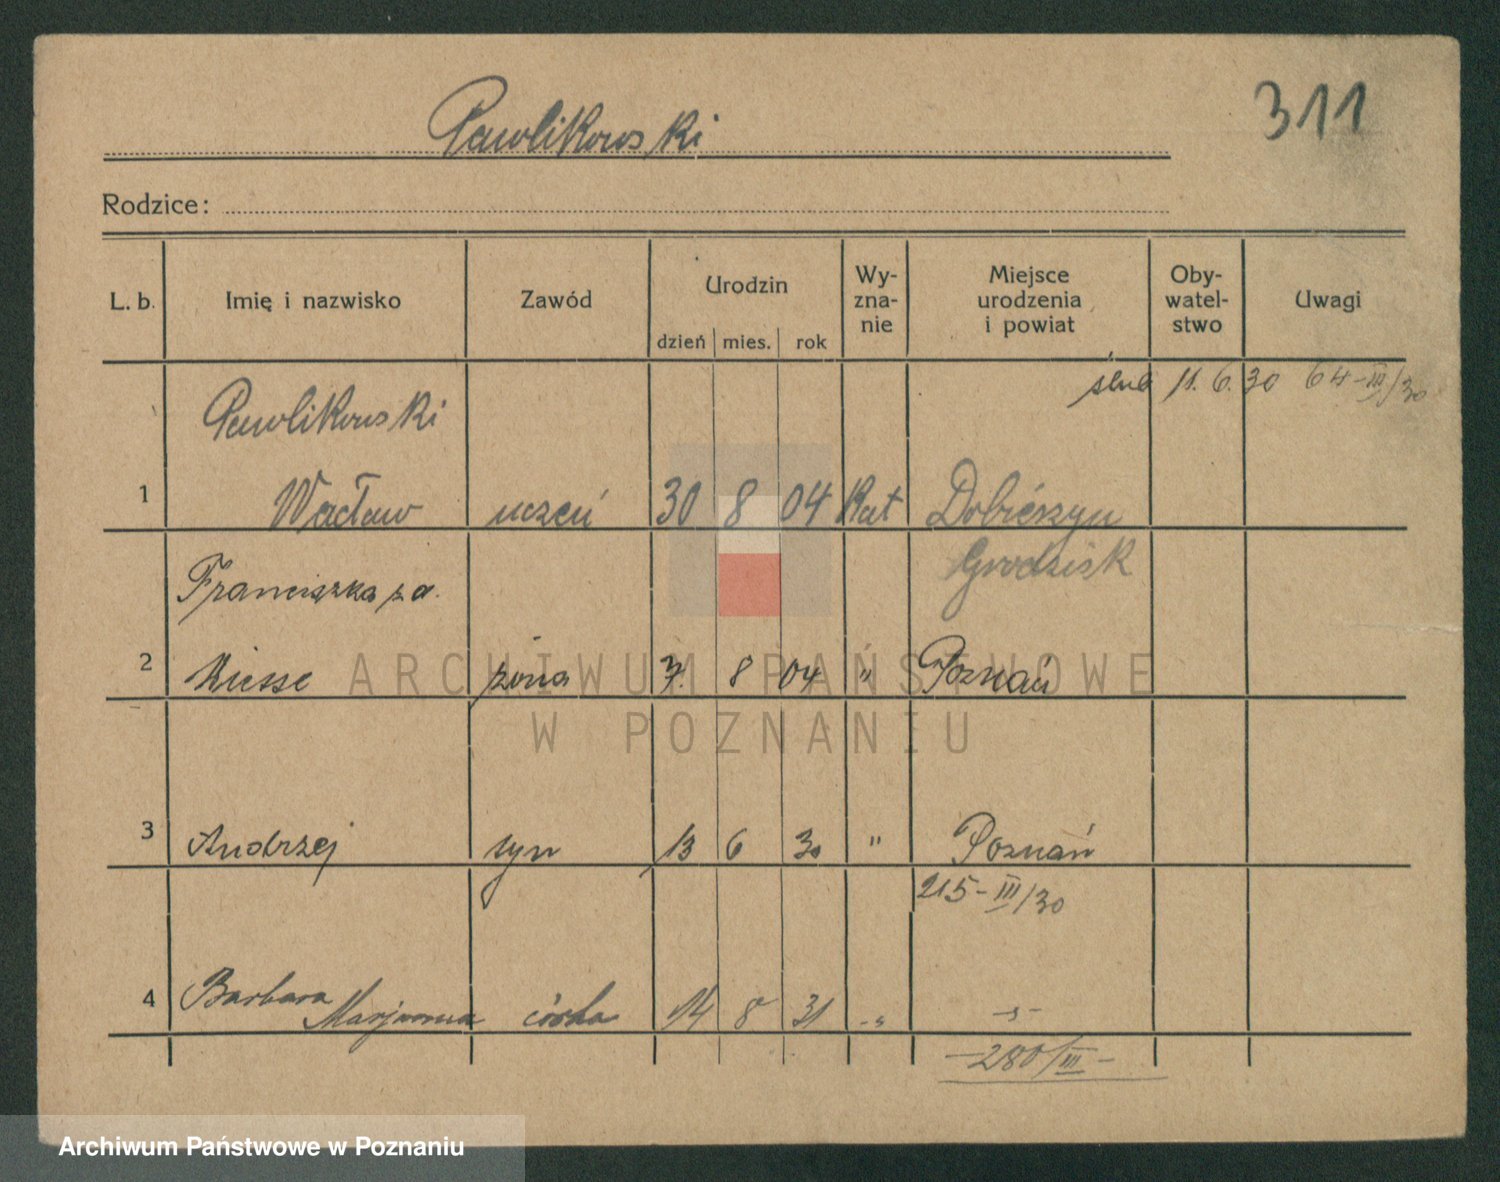 311
Pawlikowski
Rodzice:
L. b. Imię i nazwisko Zawód Urodzin dzień mies. rok Wy-zna-nie Miejsce urodzenia i powiat Oby-watel-stwo Uwagi
ślub 11. 6. 30 64-III/30
Pawlikowski
1 Wacław uczeń 30 8 04 Kat Dobieżyn
Grodzisk
Franciszka z d.
2 żona 7. 8 04 " Poznań
3 Andrzej syn 13 6 30 " Poznań
215-III/30
4 Barbara
Marjanna córka 14 8 31 -"- -"-
-280/III-
ARCHIWUM PAŃSTWOWE
W POZNANIU
Archiwum Państwowe w Poznaniu